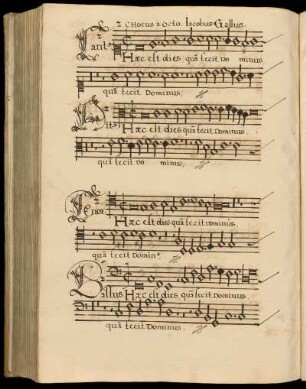 2. Chorus a Octo. Iacobus Gallus.
Cant⁹
Hæc est dies quã fecit Do minus
quã fecit Dominus.
Alt⁹
Hæc est dies quã fecit Dominus.
quã fecit Do minus.
Tenor
Hæc est dies quã fecit Dominus.
quã fecit Domin⁹.
Bassus Hæc est dies quã fecit Dominus
quã fecit Dominus.